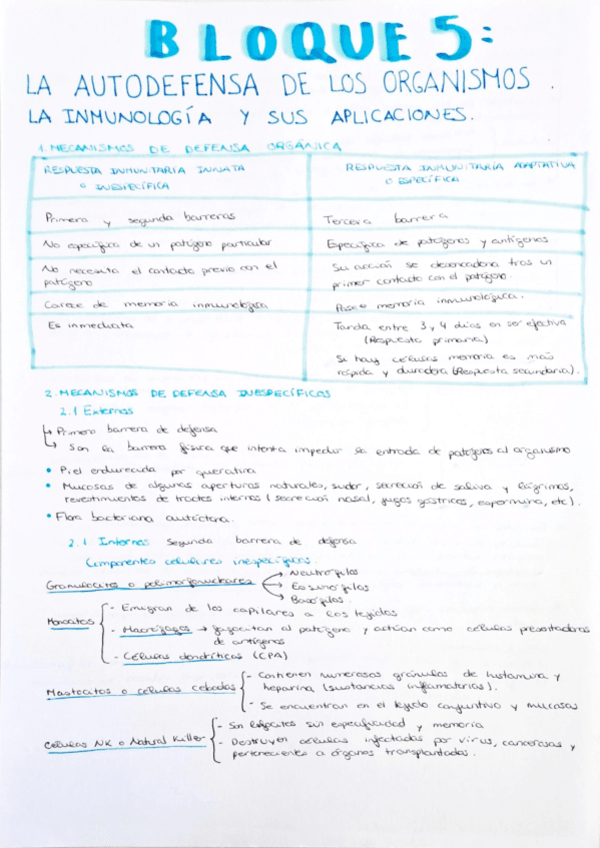 BLOQUE 5:
LA AUTODEFENSA DE LOS ORGANISMOS.
LA INMUNOLOGÍA Y SUS APLICACIONES.
1. MECANISMOS DE DEFENSA ORGÁNICA
RESPUESTA INMUNITARIA INNATA
o INESPECÍFICA
RESPUESTA INMUNITARIA ADAPTATIVA
O ESPECÍFICA
Primera y segunda barreras
Tercera barrera
No específica de un patógeno particular
Específica de patógenos y antígenos
No necesita el contacto previo con el
patógeno
Su acción se desencadena tras un
primer contacto con el patógeno.
Carece de memoria inmunológica
Posee memoria inmunológica.
Es inmediata
Tarda entre 3 y 4 días en ser efectiva
(Respuesta primaria)
Si hay células memoria es más
rápida y duradera (Respuesta secundaria).
2. MECANISMOS DE DEFENSA INESPECÍFICOS
2.1 Externos
↳ Primera barrera de defensa
↳ Son la barrera física que intenta impedir la entrada de patógenos al organismo
• Piel endurecida por queratina
• Mucosas de algunas aperturas naturales, sudor, secreción de saliva y lágrimas,
revestimientos de tractos internos (secreción nasal, jugos gástricos, espermina, etc).
• Flora bacteriana autóctona.
2.1 Internos Segunda barrera de defensa
Componentes celulares inespecíficos.
Granulocitos o polimorfonucleares
→ Neutrófilos
→ Eosinófilos
→ Basófilos
Monocitos
- Emigran de los capilares a los tejidos
- Macrófagos → fagocitan al patógeno y actúan como células presentadoras
de antígenos
- Células dendríticas (CPA)
Mastocitos o células cebadas
- Contienen numerosos gránulos de histamina y
heparina (sustancias inflamatorias).
- Se encuentran en el tejido conjuntivo y mucosas
Células NK o Natural Killer
- Son linfocitos sin especificidad y memoria
- Destruyen células infectadas por virus, cancerosas y
pertenecientes a órganos transplantados.